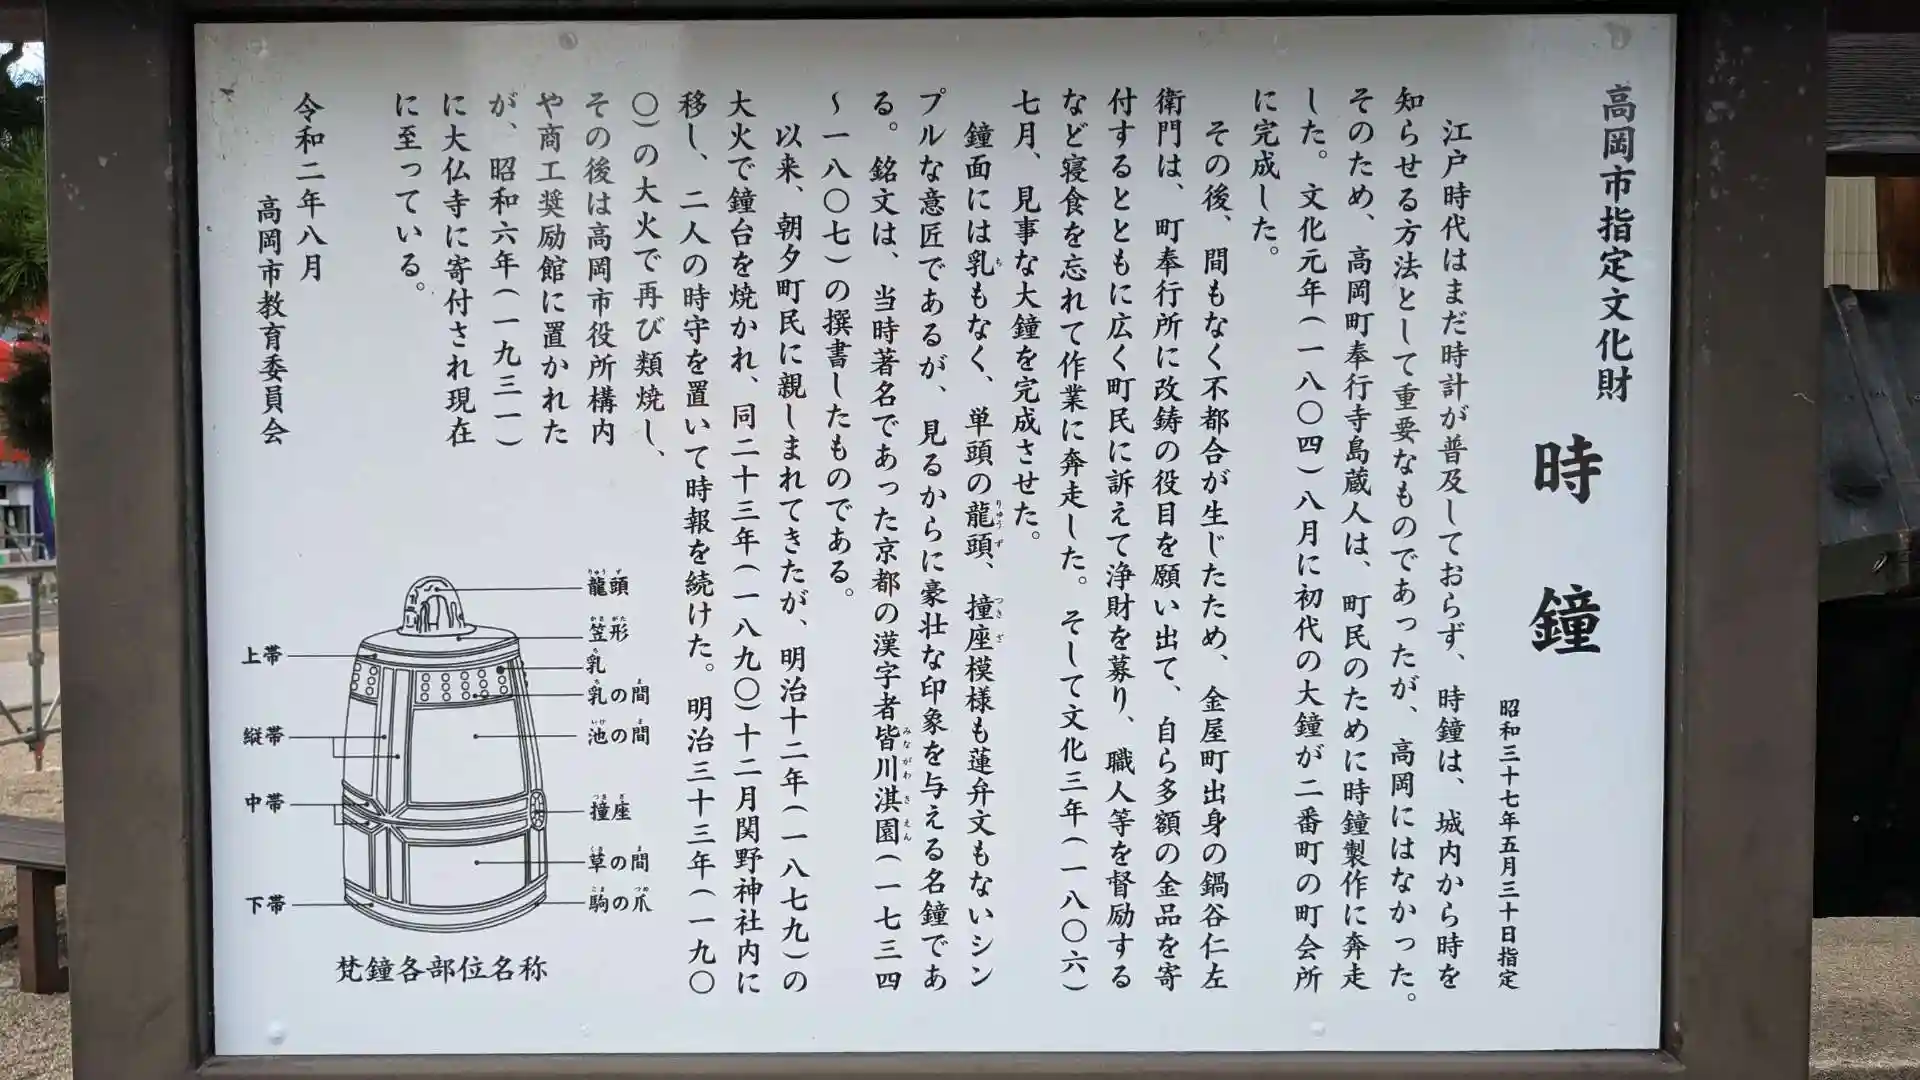 高岡市指定文化財
時鐘
昭和三十七年五月三十日指定
江戸時代はまだ時計が普及しておらず、時鐘は、城内から時を
知らせる方法として重要なものであったが、高岡にはなかった。
そのため、高岡町奉行寺島蔵人は、町民のために時鐘製作に奔走
した。文化元年(一八〇四)八月に初代の大鐘が二番町の町会所
に完成した。
その後、間もなく不都合が生じたため、金屋町出身の鍋谷仁左
衛門は、町奉行所に改鋳の役目を願い出て、自ら多額の金品を寄
付するとともに広く町民に訴えて浄財を募り、職人等を督励する
など寝食を忘れて作業に奔走した。そして文化三年(一八〇六)
七月、見事な大鐘を完成させた。
鐘面には乳もなく、単頭の龍頭、撞座模様も蓮弁文もないシン
プルな意匠であるが、見るからに豪壮な印象を与える名鐘であ
る。銘文は、当時著名であった京都の漢字者皆川淇園(一七三四
〜一八〇七)の撰書したものである。
以来、朝夕町民に親しまれてきたが、明治十二年(一八七九)の
大火で鐘台を焼かれ、同二十三年(一八九〇)十二月関野神社内に
移し、二人の時守を置いて時報を続けた。明治三十三年(一九〇
〇)の大火で再び類焼し、
その後は高岡市役所構内
や商工奨励館に置かれた
が、昭和六年(一九三一)
に大仏寺に寄付され現在
に至っている。
令和二年八月
高岡市教育委員会
龍頭
笠形
乳
乳の間
池の間
撞座
草の間
駒の爪
上帯
縦帯
中帯
下帯
梵鐘各部位名称